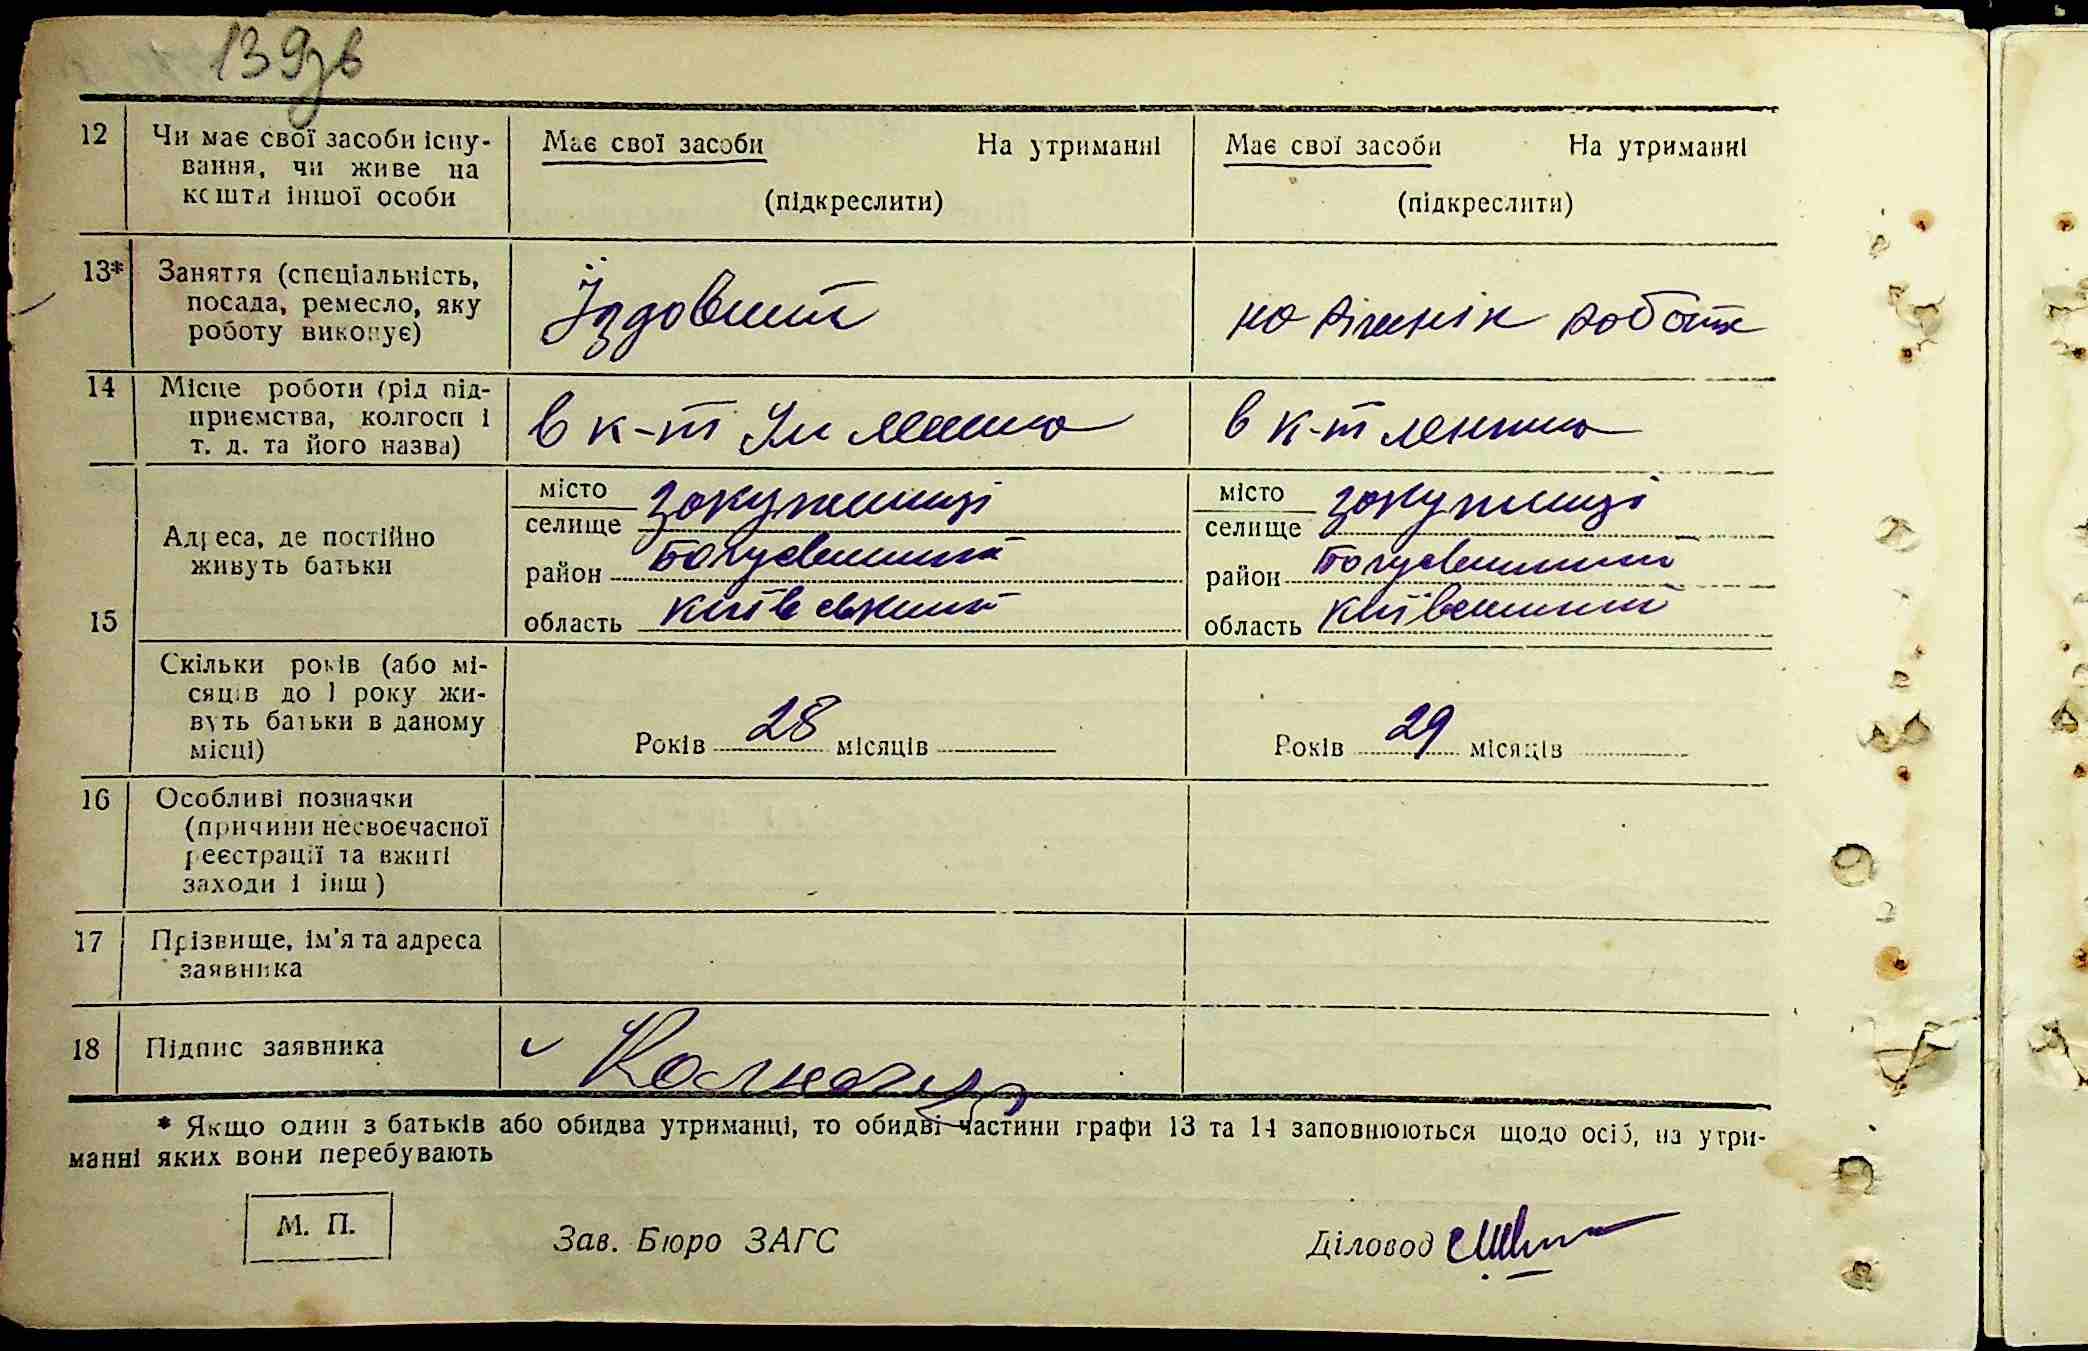 139зв
12 Чи має свої засоби існу-
вання, чи живе на
кошти іншої особи
Має свої засоби На утриманні
(підкреслити)
Має свої засоби На утриманні
(підкреслити)
13* Заняття (спеціальність,
посада, ремесло, яку
роботу виконує)
Їздовий
на різних роботах
14 Місце роботи (рід під-
приємства, колгосп і
т. д. та його назва)
в к-т Ім Леніна
в к-т Леніна
15 Адреса, де постійно
живуть батьки
місто
селище
район
область Київський
місто
селище
район
область Київський
Скільки років (або мі-
сяців до 1 року жи-
вуть батьки в даному
місці)
Років 28 місяців
Років 29 місяців
16 Особливі позначки
(причини несвоєчасної
реєстрації та вжиті
заходи і інш)
17 Прізвище, ім'я та адреса
заявника
18 Підпис заявника
* Якщо один з батьків або обидва утриманці, то обидві частини графи 13 та 14 заповнюються щодо осіб, на утри-
манні яких вони перебувають
М. П.
Зав. Бюро ЗАГС
Діловод